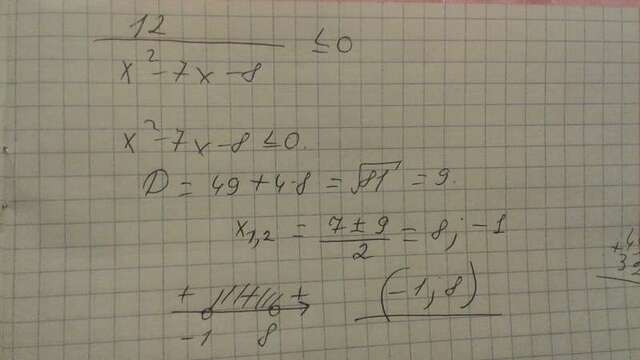 12
x²-7x-8 ≤0
x²-7x-8≤0.
D=49+4·8=√81=9.
x₁,₂ = (7±9)/2 = 8; -1
+ - +
-1 8
(-1; 8)